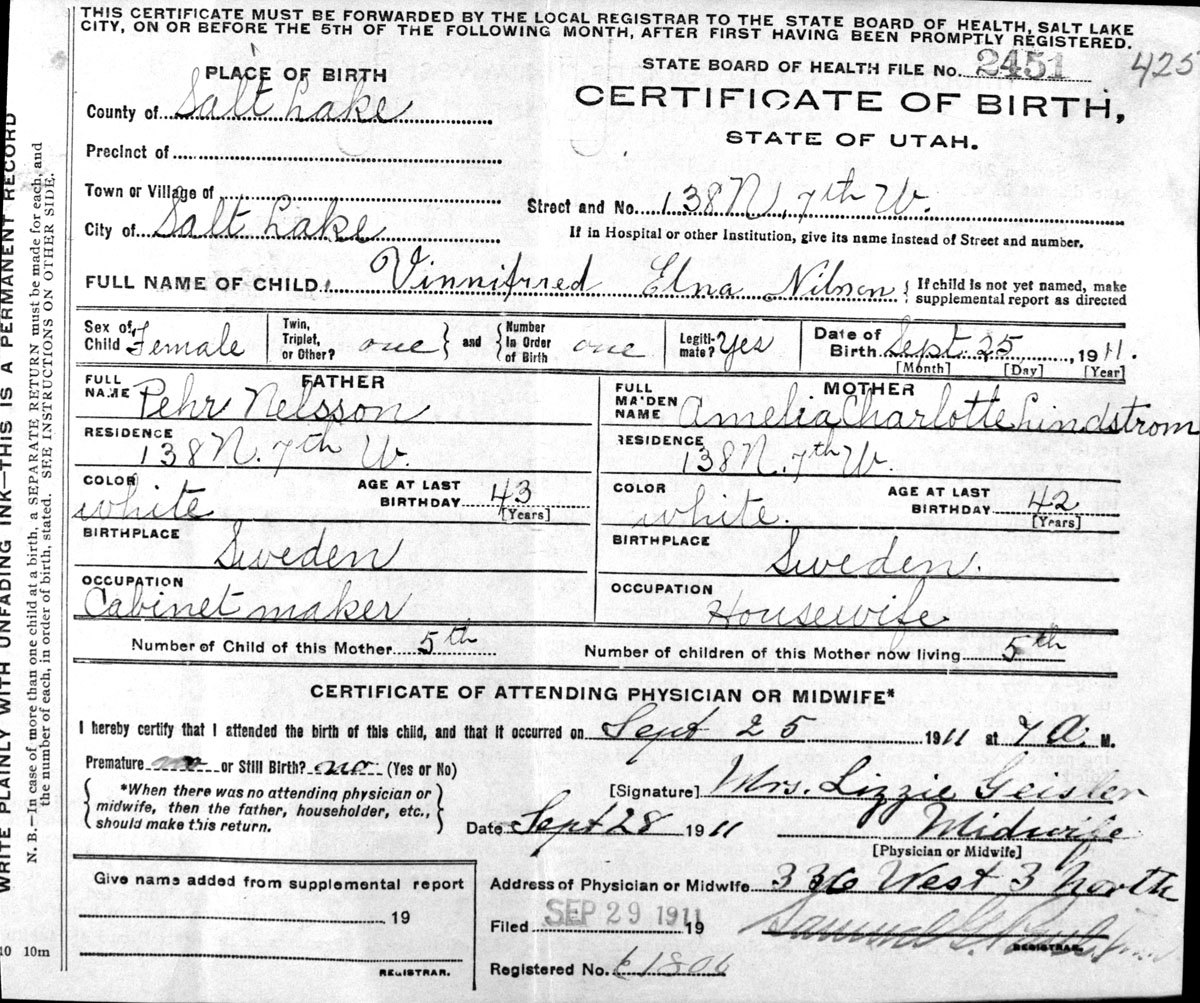 THIS CERTIFICATE MUST BE FORWARDED BY THE LOCAL REGISTRAR TO THE STATE BOARD OF HEALTH, SALT LAKE
CITY, ON OR BEFORE THE 5TH OF THE FOLLOWING MONTH, AFTER FIRST HAVING BEEN PROMPTLY REGISTERED.
STATE BOARD OF HEALTH FILE No. 2451 425
PLACE OF BIRTH
CERTIFICATE OF BIRTH,
STATE OF UTAH.
County of Salt Lake
Precinct of
Town or Village of
Street and No. 138 N. 7th W.
City of Salt Lake
If in Hospital or other Institution, give its name instead of Street and number.
FULL NAME OF CHILD Vinnifred Elna Nilson { If child is not yet named, make
supplemental report as directed
Sex of Child Female
Twin, Triplet, or Other? one } and { Number In Order of Birth one
Legitimate? Yes
Date of Birth Sept. 25, 1911.
[Month] [Day] [Year]
FATHER
FULL NAME Pehr Nelsson
RESIDENCE
138 N. 7th W.
COLOR white
AGE AT LAST BIRTHDAY 43
[Years]
BIRTHPLACE
Sweden
OCCUPATION
Cabinet maker
MOTHER
FULL MAIDEN NAME Amelia Charlotte Lindstrom
RESIDENCE
138 N. 7th W.
COLOR white.
AGE AT LAST BIRTHDAY 42
[Years]
BIRTHPLACE
Sweden.
OCCUPATION
Housewife
Number of Child of this Mother 5th
Number of children of this Mother now living 5th
CERTIFICATE OF ATTENDING PHYSICIAN OR MIDWIFE*
I hereby certify that I attended the birth of this child, and that it occurred on Sept 25 1911 at 7 A. M.
Premature no or Still Birth? no (Yes or No)
*When there was no attending physician or
midwife, then the father, householder, etc.,
should make this return.
[Signature] Mrs. Lizzie Geisler
Date Sept 28 1911 Midwife
[Physician or Midwife]
Give name added from supplemental report
19
REGISTRAR.
Address of Physician or Midwife 336 West 3 North
Filed SEP 29 1911 19
REGISTRAR.
Registered No. 1806
WRITE PLAINLY WITH UNFADING INK—THIS IS A PERMANENT RECORD
N. B.—In case of more than one child at a birth, a SEPARATE RETURN must be made for each, and
the number of each, in order of birth, stated. SEE INSTRUCTIONS ON OTHER SIDE.
10 10m